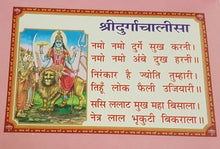 श्रीदुर्गाचालीसा
नमो नमो दुर्गे सुख करनी।
नमो नमो अंबे दुख हरनी॥
निरंकार है ज्योति तुम्हारी।
तिहूँ लोक फैली उजियारी॥
ससि ललाट मुख महा बिसाला।
नेत्र लाल भृकुटी बिकराला॥